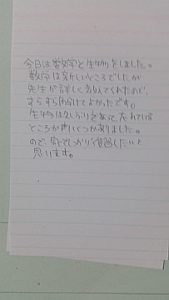 今日は数学と生物をしました。
数学は新しいところでしたが
先生が詳しく教えてくれたので、
すらすら解けてよかったです。
生物は久しぶりとあって、忘れている
ところがいくつかありました。
ので、家でしっかり復習したいと
思います。